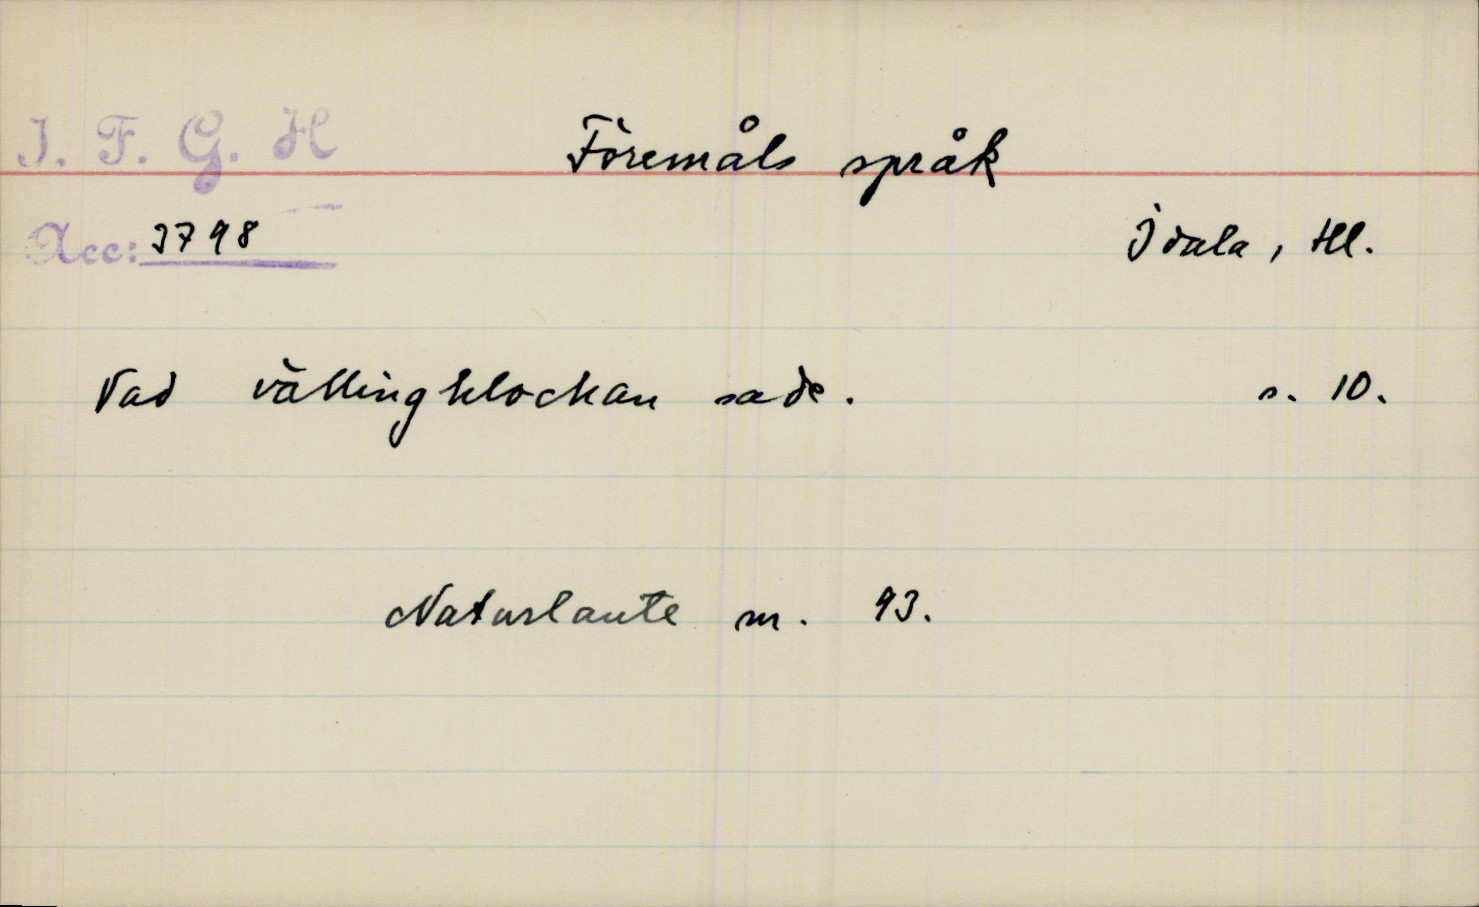 I. F. G. H
Föremåls språk
Acc: 3798
Idala, Hl.
Vad vällingklockan sade. s. 10.
Naturlaute nr. 93.